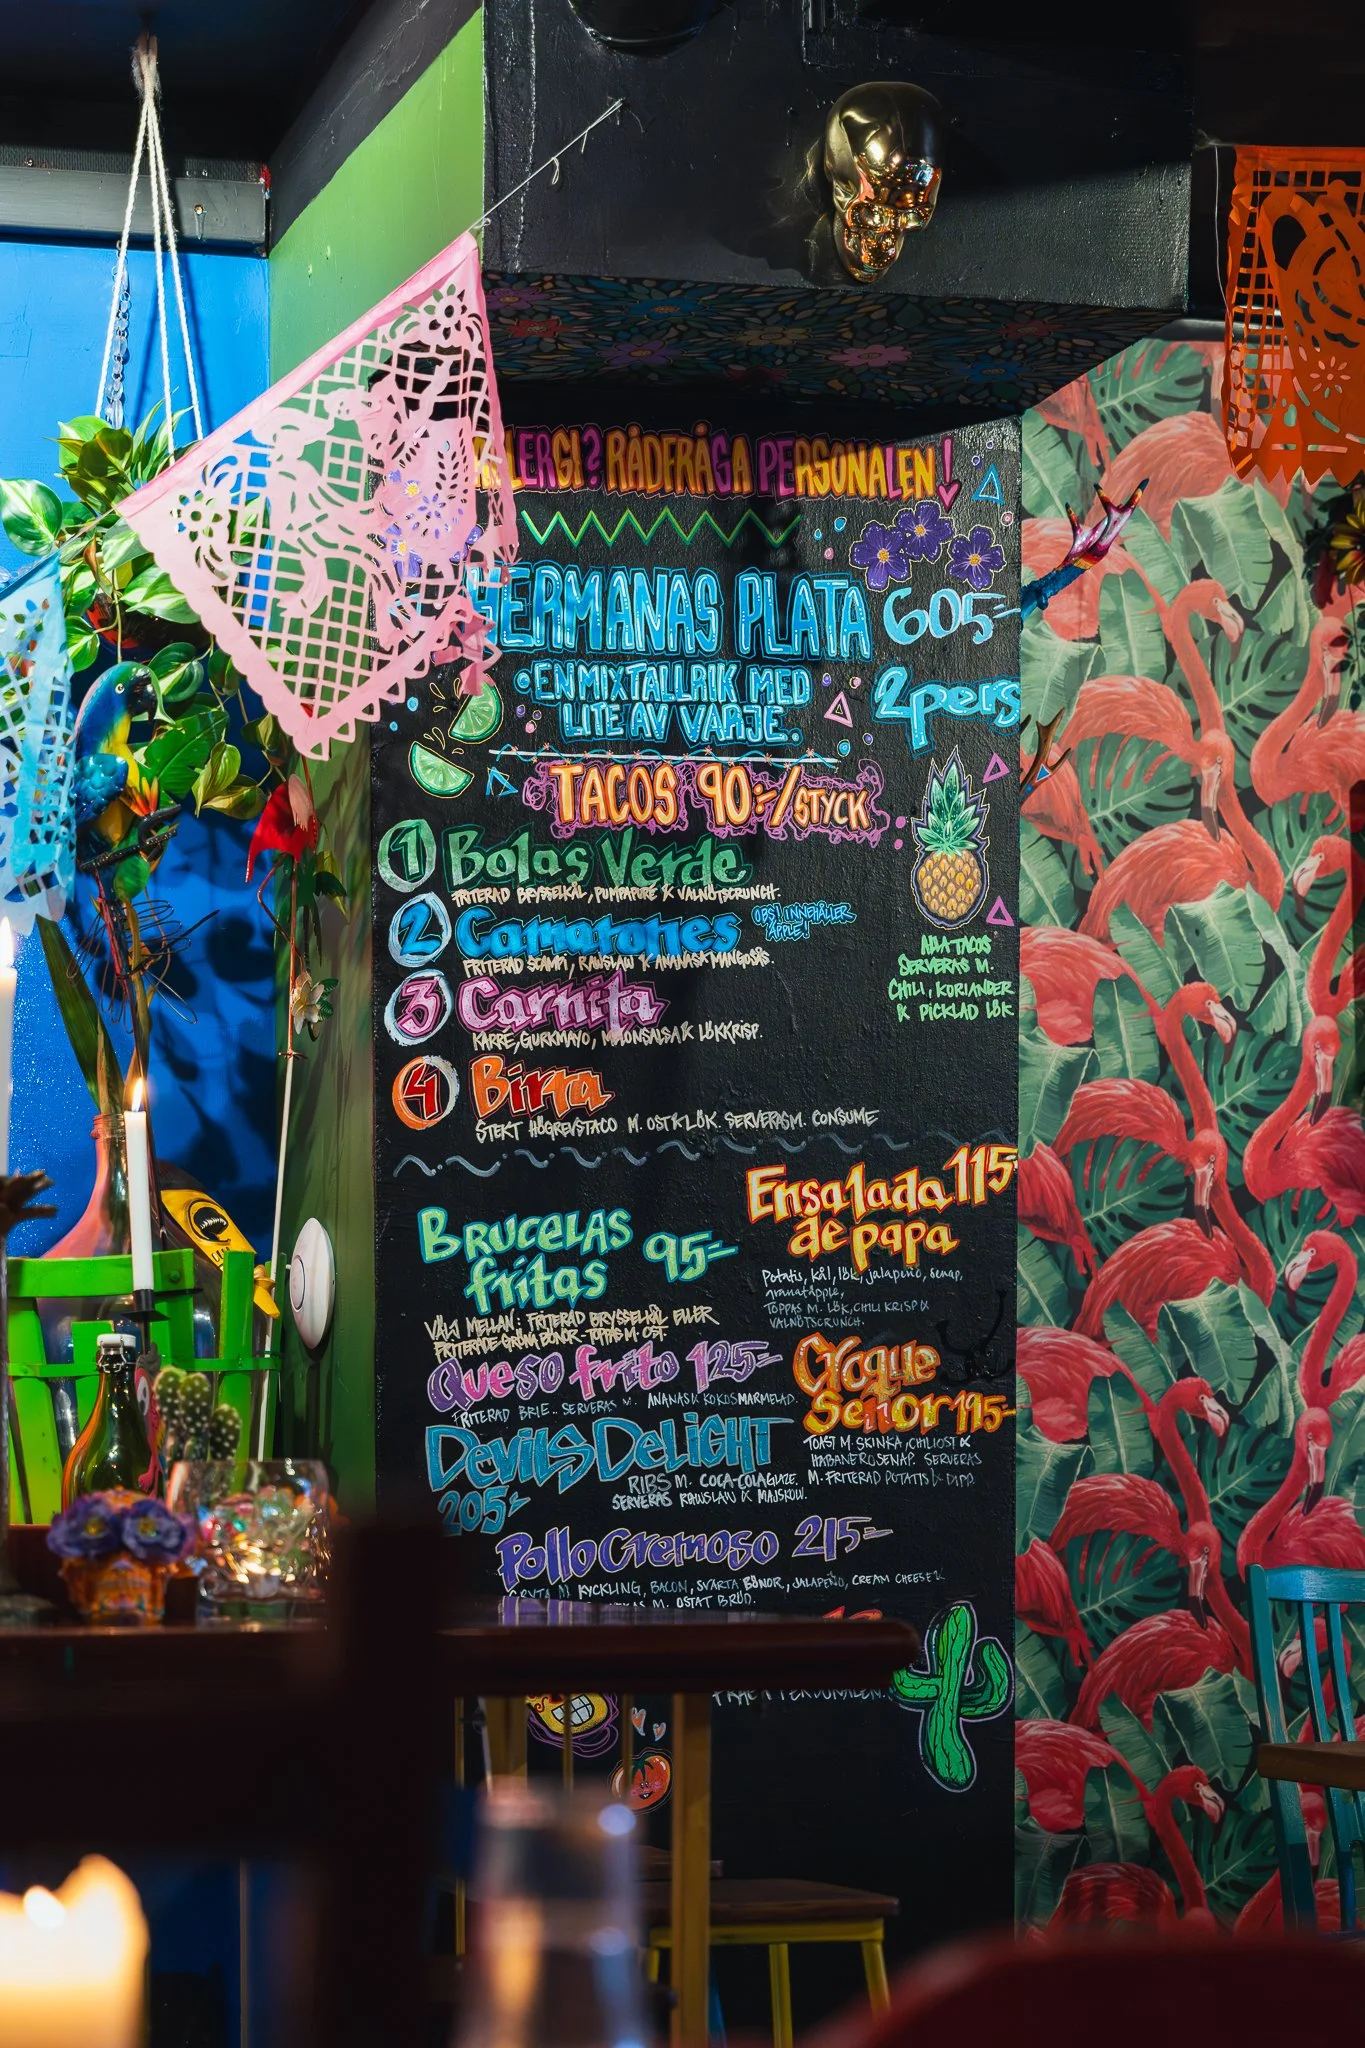 ALLERGI? RÅDFRÅGA PERSONALEN!
HERMANAS PLATA 605:-
•EN MIXTALLRIK MED
LITE AV VARJE.
2 pers
TACOS 90:-/STYCK
1 Bolas Verde
FRITERAD BRYSSELKÅL, PUMPAPURÉ & VALNÖTSCRUNCH.
2 Camarones
OBS! INNEHÅLLER
ÄPPLE!
FRITERAD SCAMPI, RAWSLAW & ANANAS&MANGOSÅS.
3 Carnita
KARRÉ, GURKMAYO, MELONSALSA & LÖKKRISP.
4 Birra
STEKT HÖGREVSTACO M. OST & LÖK. SERVERAS M. CONSUME
ALLA TACOS
SERVERAS M.
CHILI, KORIANDER
& PICKLAD LÖK
Brucelas
fritas 95:-
VÄLJ MELLAN: FRITERAD BRYSSELKÅL ELLER
FRITERADE GRÖNA BÖNOR - TOPPAS M. OST.
Ensalada 115:-
de papa
Potatis, kål, lök, jalapeño, senap,
granatäpple,
TOPPAS M. LÖK, CHILI KRISP &
VALNÖTSCRUNCH.
Queso frito 125:-
FRITERAD BRIE.. SERVERAS M. ANANAS & KOKOSMARMELAD.
Croque
Señor 195:-
TOAST M. SKINKA, CHILIOST &
HABANEROSENAP. SERVERAS
M. FRITERAD POTATIS & DIPP.
Devils Delight
205:-
RIBS M. COCA-COLAGLAZE.
SERVERAS RAWSLAW & MAJSKOLV.
Pollo Cremoso 215:-
GRYTA M. KYCKLING, BACON, SVARTA BÖNOR, JALAPEÑO, CREAM CHEESE &
M. OSTAT BRÖD.
PERSONALEN.